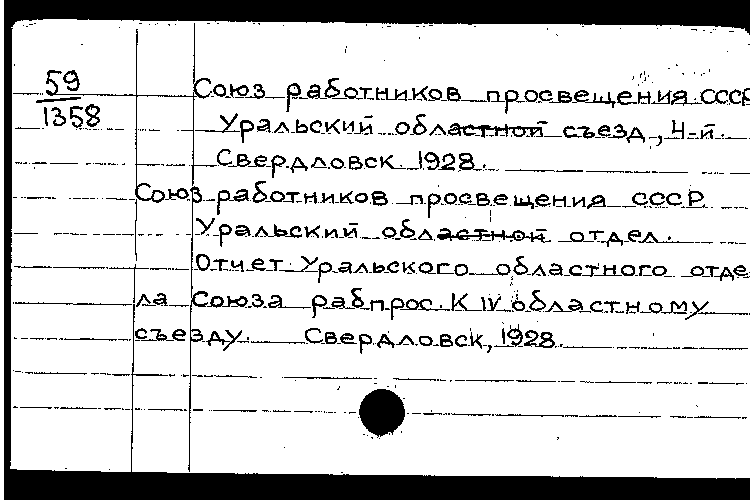 59
1358
Союз работников просвещения СССР
Уральский областной съезд, 4-й.
Свердловск. 1928.
Союз работников просвещения СССР
Уральский областной отдел.
Отчет Уральского областного отде
ла Союза рабпрос. К IV областному
съезду. Свердловск, 1928.